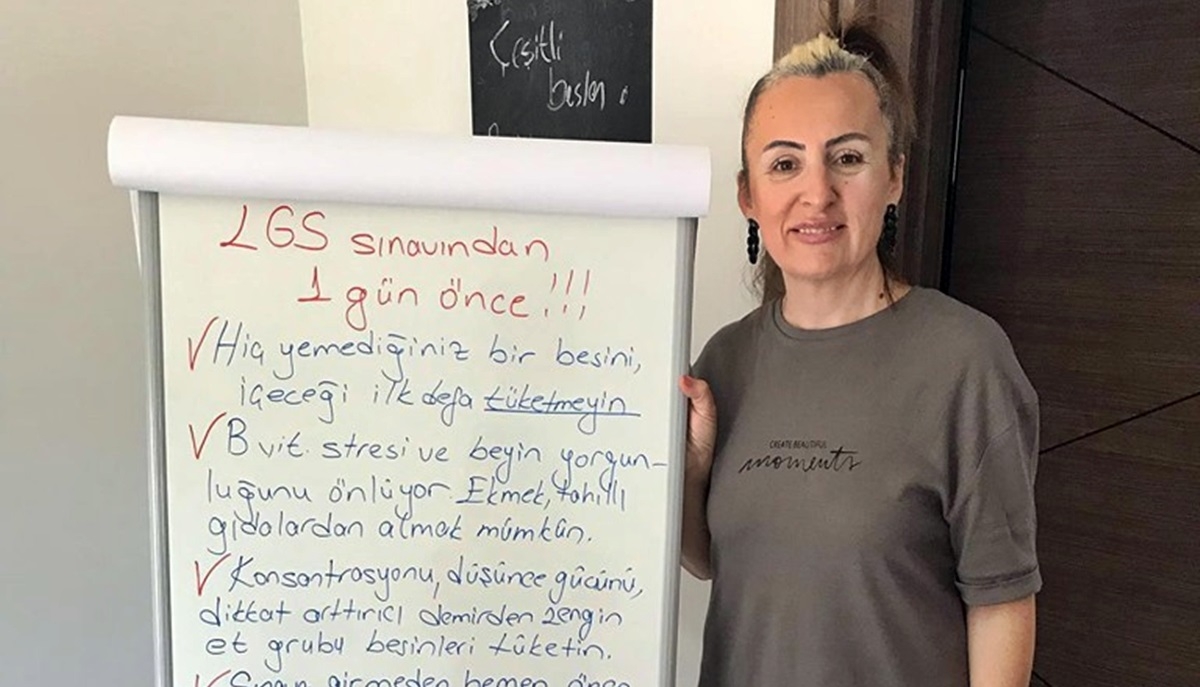 Çeşitli
beslen
LGS sınavından
1 gün önce!!!
√ Hiç yemediğiniz bir besini,
içeceği ilk defa tüketmeyin
√ B vit. stresi ve beyin yorgun-
luğunu önlüyor. Ekmek, tahıllı
gıdalardan almak mümkün.
√ Konsantrasyonu, düşünce gücünü,
dikkat arttırıcı demirden zengin
et grubu besinleri tüketin.
√ Sınava girmeden hemen önce
CREATE BEAUTIFUL
moments